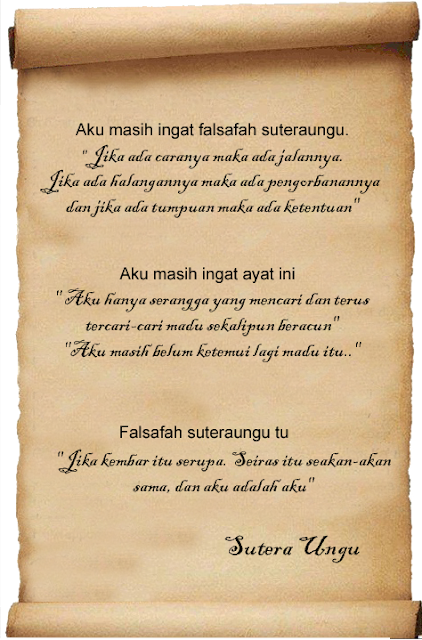 Aku masih ingat falsafah suteraungu.
" Jika ada caranya maka ada jalannya.
Jika ada halangannya maka ada pengorbanannya
dan jika ada tumpuan maka ada ketentuan"
Aku masih ingat ayat ini
"Aku hanya serangga yang mencari dan terus
tercari-cari madu sekalipun beracun"
"Aku masih belum ketemui lagi madu itu.."
Falsafah suteraungu tu
"Jika kembar itu serupa. Seiras itu seakan-akan
sama, dan aku adalah aku"
Sutera Ungu